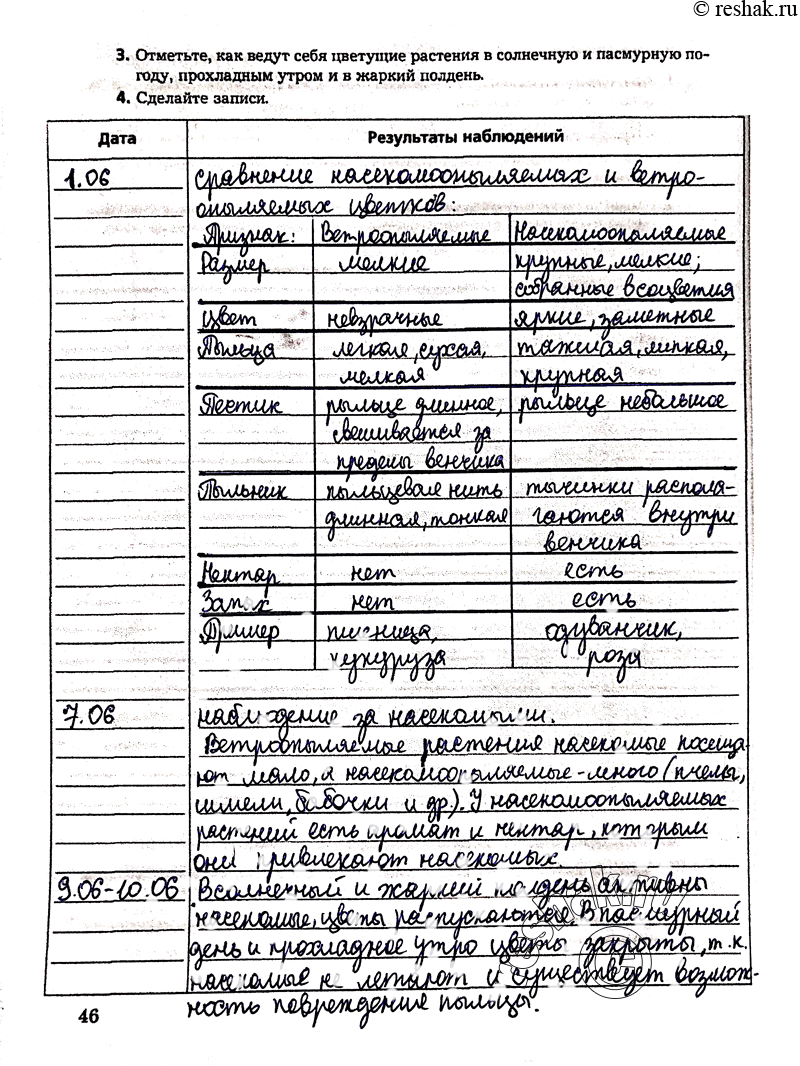 © reshak.ru
3. Отметьте, как ведут себя цветущие растения в солнечную и пасмурную по-
году, прохладным утром и в жаркий полдень.
4. Сделайте записи.
Дата Результаты наблюдений
1.06 сравнение насекомоопыляемых и ветро-
опыляемых цветков:
Признак: Ветроопыляемые Насекомоопыляемые
Размер мелкие крупные, мелкие;
собранные в соцветия
Цвет невзрачные яркие, заметные
Пыльца легкая, сухая, тяжелая, липкая,
мелкая крупная
Пестик рыльце длинное, рыльце небольшое
свешивается за
пределы венчика
Пыльник пыльцевая нить тычинки распола-
длинная, тонкая гаются внутри
венчика
Нектар нет есть
Запах нет есть
Пример пшеница, одуванчик,
кукуруза роза
7.06 наблюдение за насекомыми.
Ветроопыляемые растения насекомые посеща-
ют мало, а насекомоопыляемые - много (пчелы,
шмели, бабочки и др.). У насекомоопыляемых
растений есть аромат и нектар, которым
они привлекают насекомых.
9.06-10.06 В солнечный и жаркий полдень активны
насекомые, цветы распускаются. В пасмурный
день и прохладное утро цветы закрыты, т.к.
насекомые не летают и существует возмож-
ность повреждение пыльцы.
46